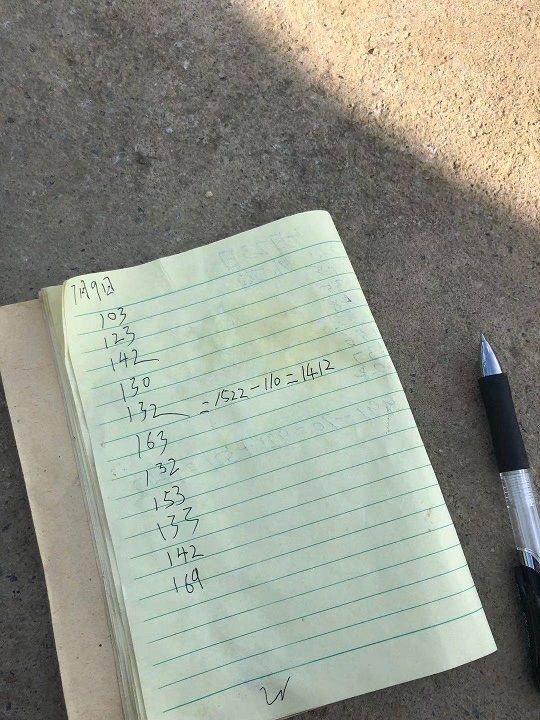 7月9日
103
123
142
130
132 =1522-110=1412
163
132
153
133
142
169